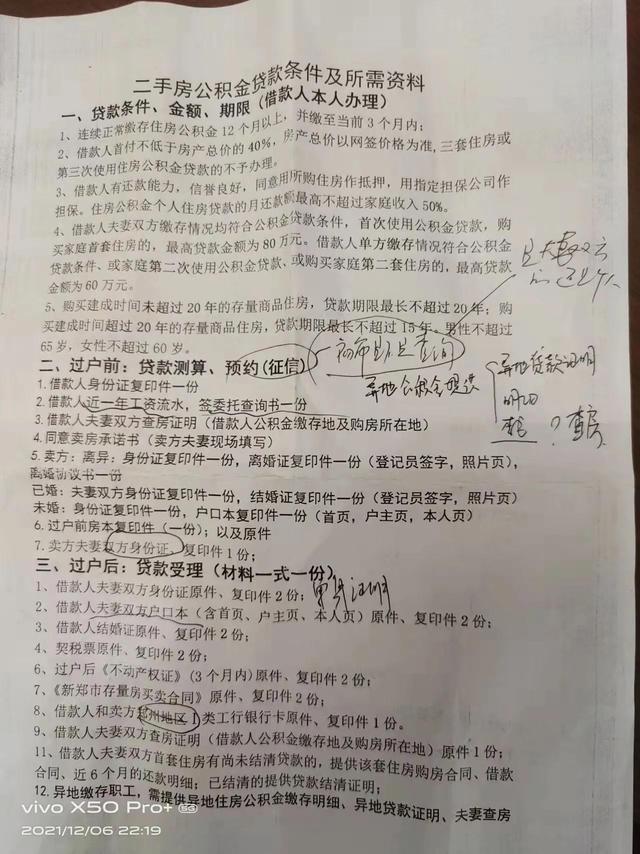 二手房公积金贷款条件及所需资料
一、贷款条件、金额、期限(借款人本人办理)
1、连续正常缴存住房公积金12个月以上，并缴至当前3个月内；
2、借款人首付不低于房产总价的40%，房产总价以网签价格为准，三套住房或
第三次使用住房公积金贷款的不予办理。
3、借款人有还款能力，信誉良好，同意用所购住房作抵押，用指定担保公司作
担保。住房公积金个人住房贷款的月还款额最高不超过家庭收入50%。
4、借款人夫妻双方缴存情况均符合公积金贷款条件，首次使用公积金贷款，购
买家庭首套住房的，最高贷款金额为80万元。借款人单方缴存情况符合公积金
贷款条件、或家庭第二次使用公积金贷款、或购买家庭第二套住房的，最高贷款
金额为60万元。
5、购买建成时间未超过20年的存量商品住房，贷款期限最长不超过20年；购
买建成时间超过20年的存量商品住房，贷款期限最长不超过15年。男性不超过
65岁，女性不超过60岁。
二、过户前：贷款测算、预约(征信)
1.借款人身份证复印件一份
异地公积金提供
异地贷款证明
明细
查房
2.借款人近一年工资流水，签委托查询书一份
3.借款人夫妻双方查房证明（借款人公积金缴存地及购房所在地）
4.同意卖房承诺书（卖方夫妻现场填写）
5.卖方：离异：身份证复印件一份，离婚证复印件一份（登记员签字，照片页），
离婚协议书一份
已婚：夫妻双方身份证复印件一份，结婚证复印件一份（登记员签字，照片页）
未婚：身份证复印件一份，户口本复印件一份（首页，户主页，本人页）
6.过户前房本复印件（一份）；以及原件
7.卖方夫妻双方身份证、复印件1份；
三、过户后：贷款受理（材料一式一份）
1、借款人夫妻双方身份证原件、复印件2份；
2、借款人夫妻双方户口本（含首页、户主页、本人页）原件、复印件2份；
3、借款人结婚证原件、复印件2份；
4、契税票原件、复印件2份；
6、过户后《不动产权证》(3个月内)原件、复印件2份；
7、《新郑市存量房买卖合同》原件、复印件2份；
8、借款人和卖方郑州地区I类工行银行卡原件、复印件1份。
9、借款人夫妻双方查房证明（借款人公积金缴存地及购房所在地）原件1份；
11、借款人夫妻双方首套住房有尚未结清贷款的，提供该套住房购房合同、借款
合同、近6个月的还款明细；已结清的提供贷款结清证明；
12.异地缴存职工，需提供异地住房公积金缴存明细、异地贷款证明、夫妻查房
vivo X50 Pro+ 5G
2021/12/06 22:19